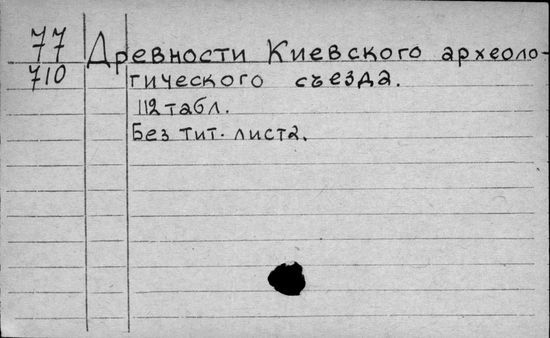 77
710
Древности Киевского археоло-
гического съезда.
112 табл.
Без тит. листа.